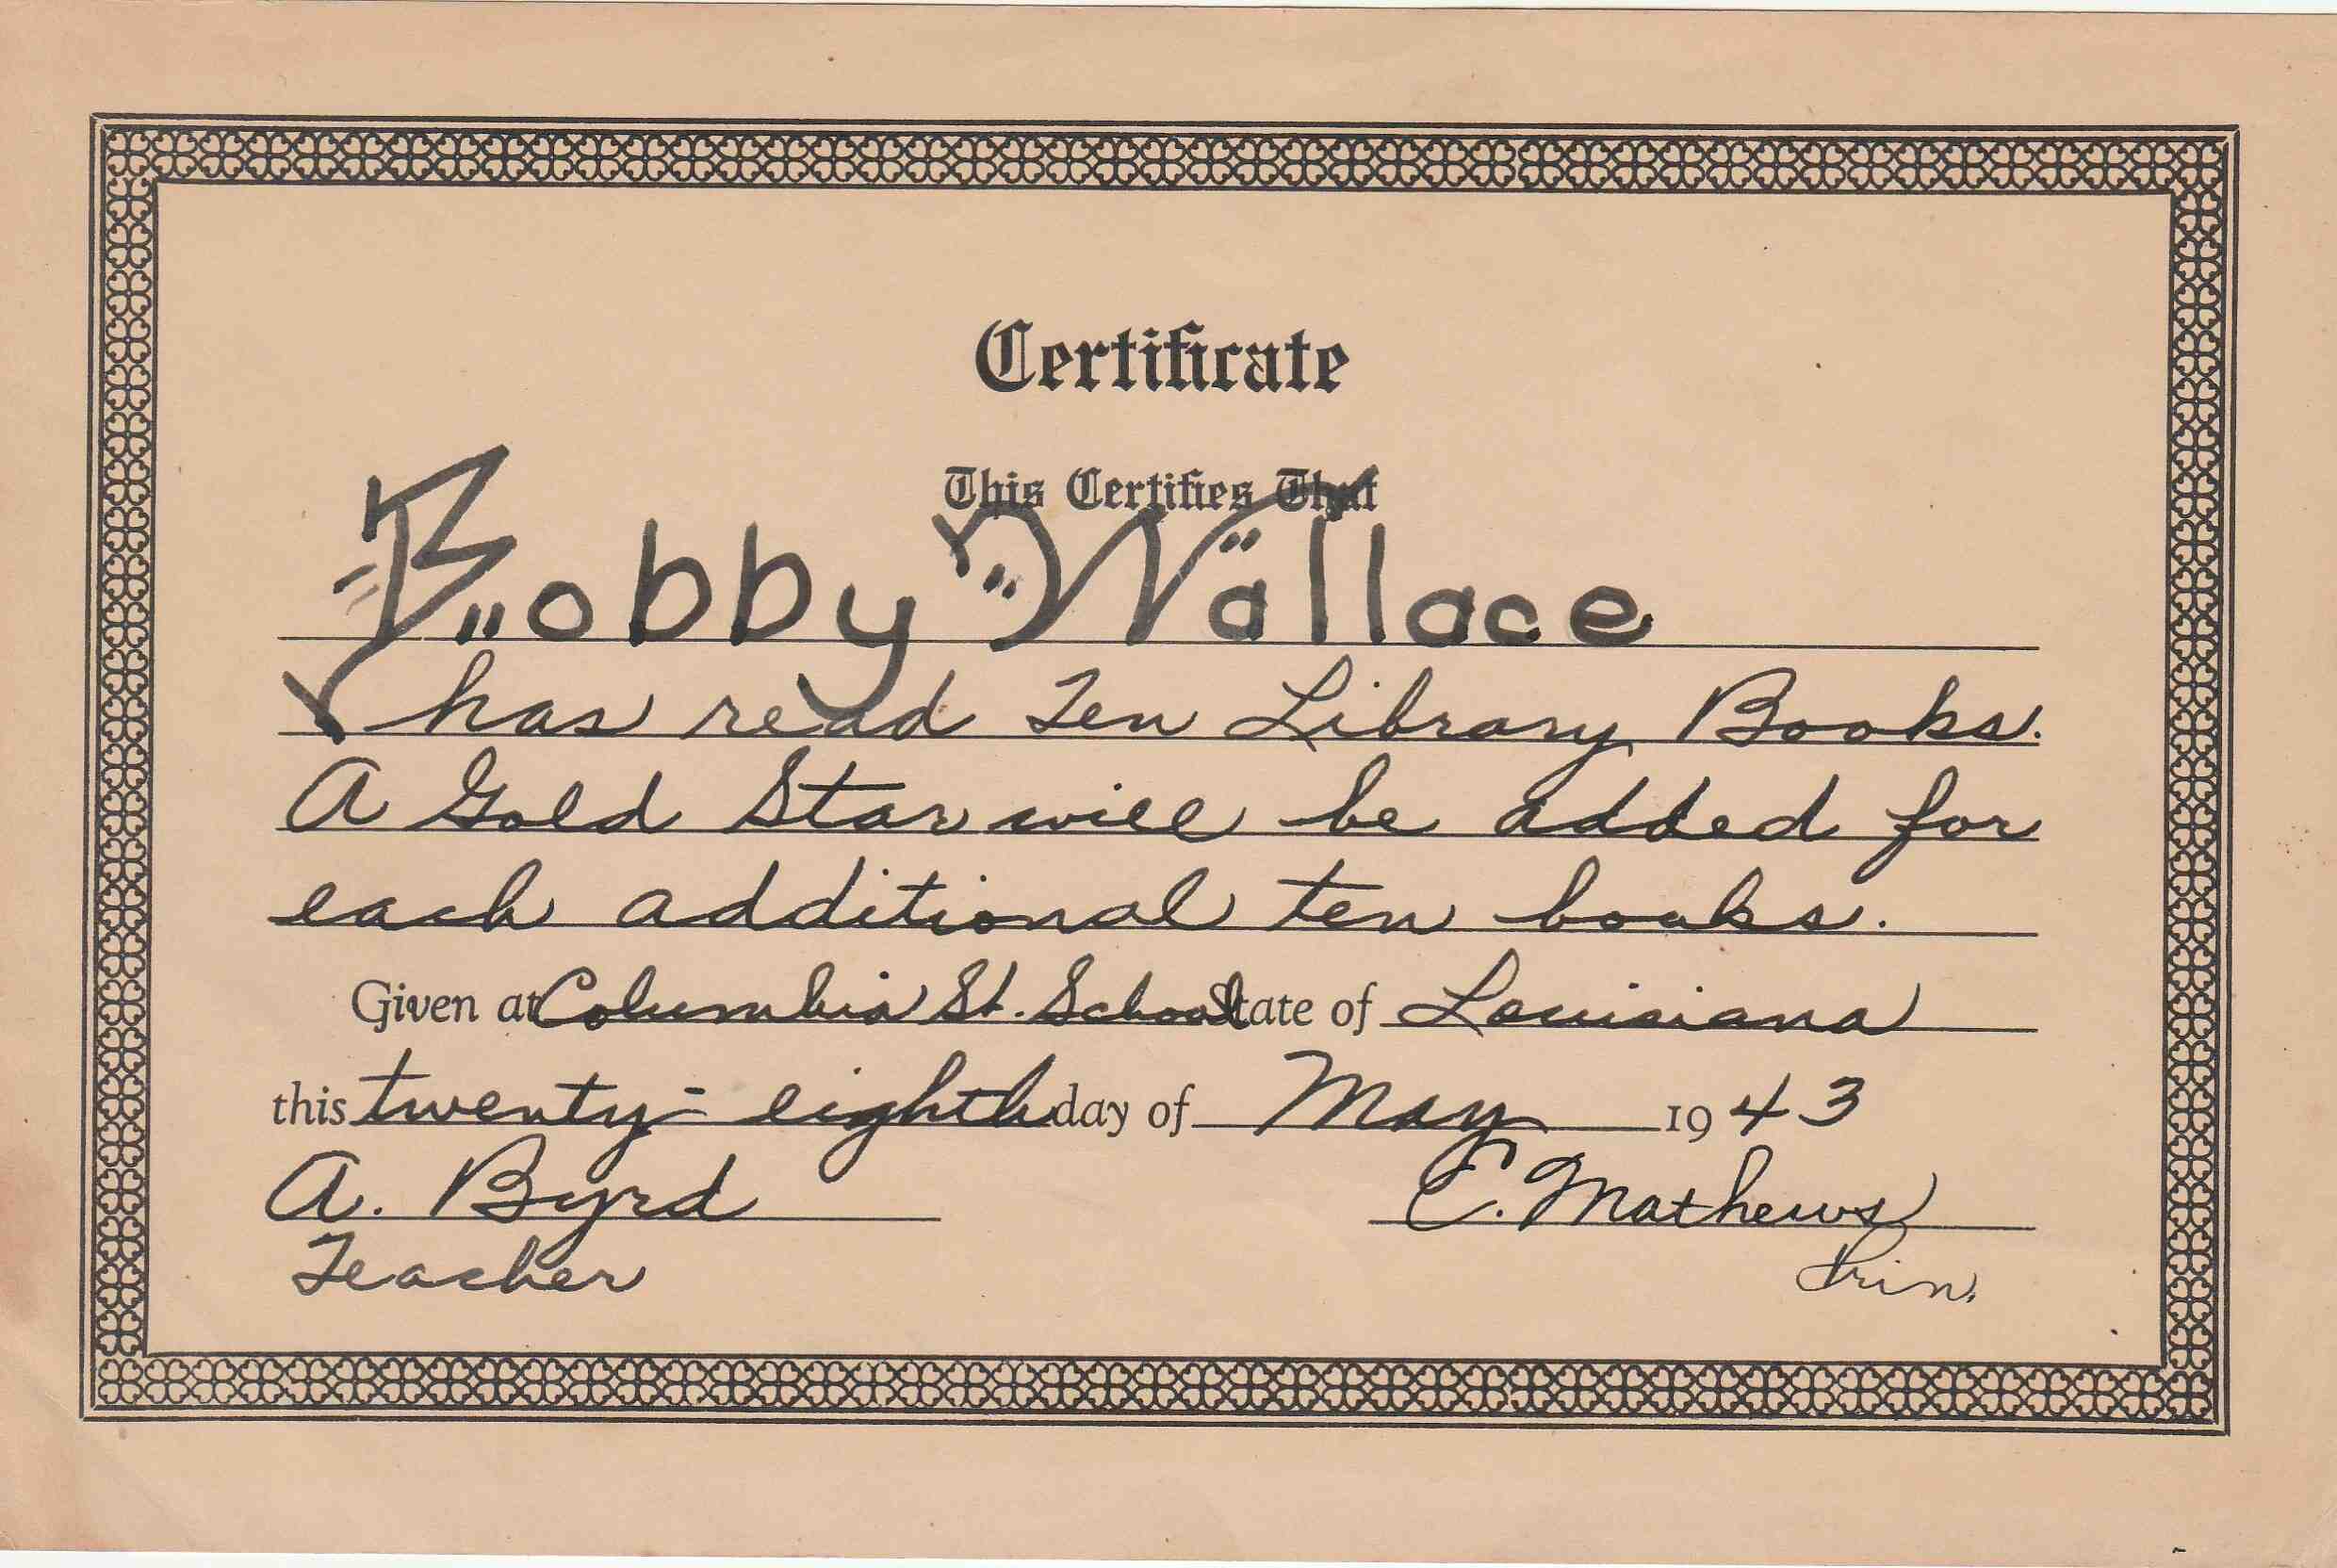 Certificate
This Certifies That
Bobby Wallace
has read Ten Library Books.
A Gold Star will be added for
each additional ten books.
Given at Columbia St. School State of Louisiana
this twenty-eighth day of May 1943
A. Byrd E. Mathews
Teacher Prin.